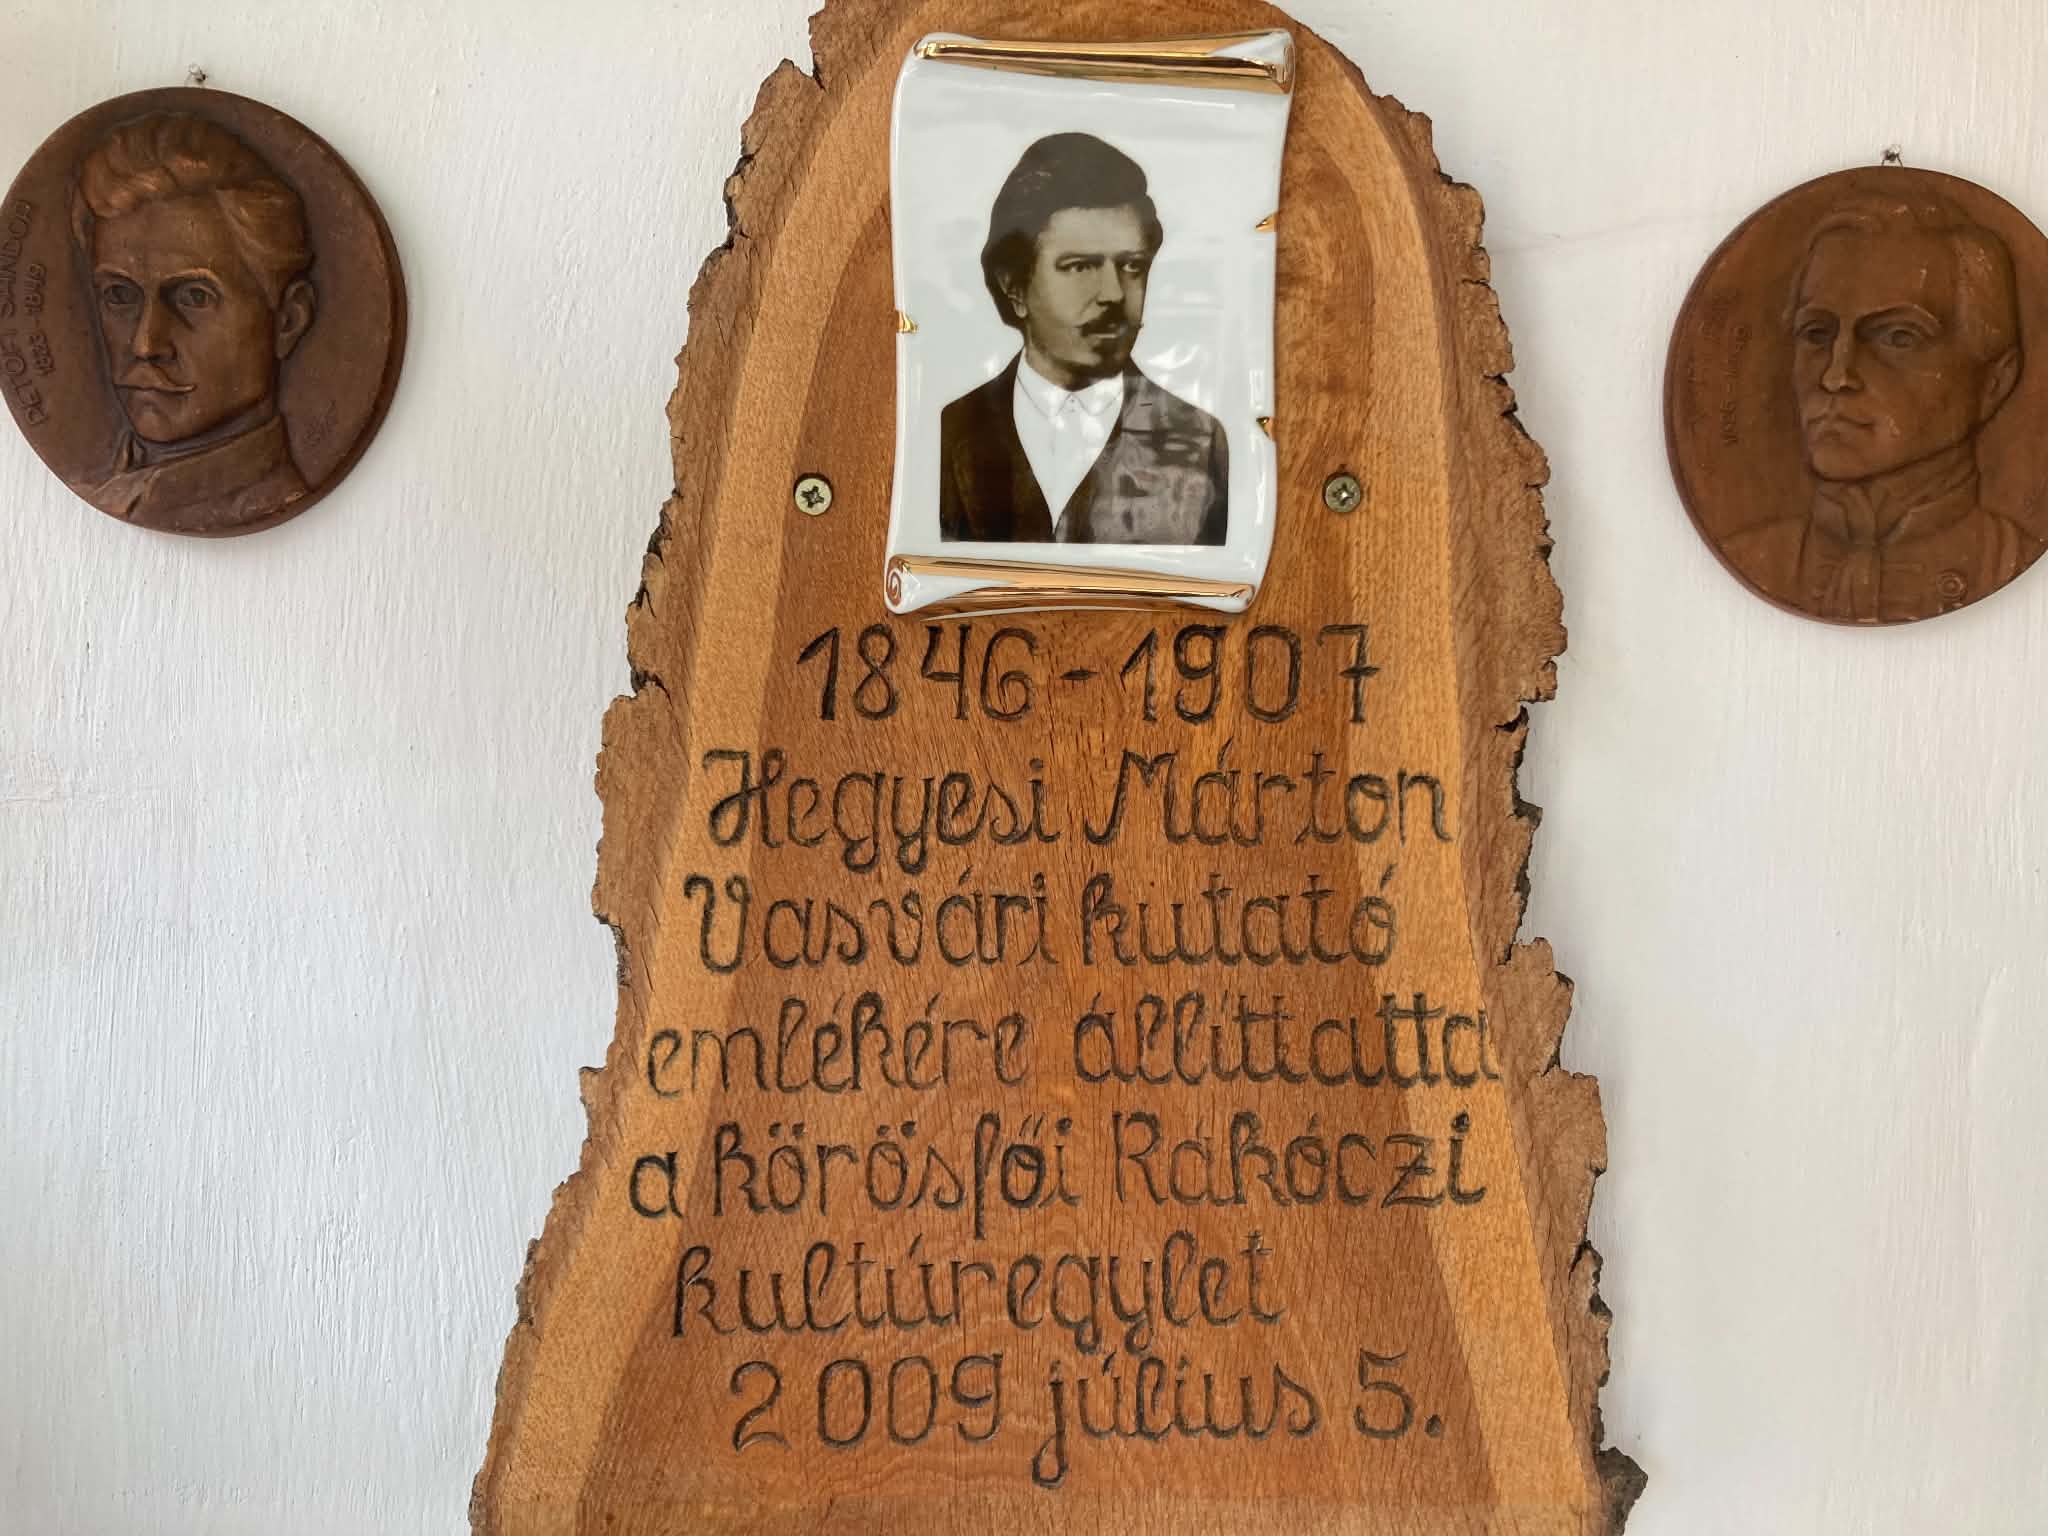 PETŐFI SÁNDOR
1823-1849
1846-1907
Hegyesi Márton
Vasvári kutató
emlékére állíttatta
a körösfői Rákóczi
kultúregylet
2009 július 5.